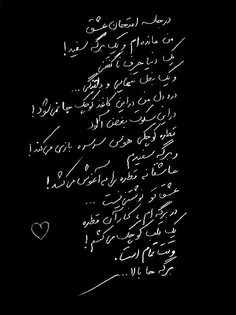 در جلسه امتحان عشق
من مانده‌ام و یک برگه سفید!
یک دنیا حرف ناگفتنی
و یک بغل تنهایی و دلتنگی...
درد دل من در این کاغذ کوچک جا نمی‌شود!
در این سکوت بغض آلود
قطره کوچکی هوس سرسره بازی می‌کند!
و برگه سفیدم
عاشقانه قطره را به آغوش می‌کشد!
عشق تو نوشتنی نیست...
در برگه‌ام، کنار آن قطره
یک قلب کوچک می‌کشم!
وقت تمام است.
برگه ها بالا...